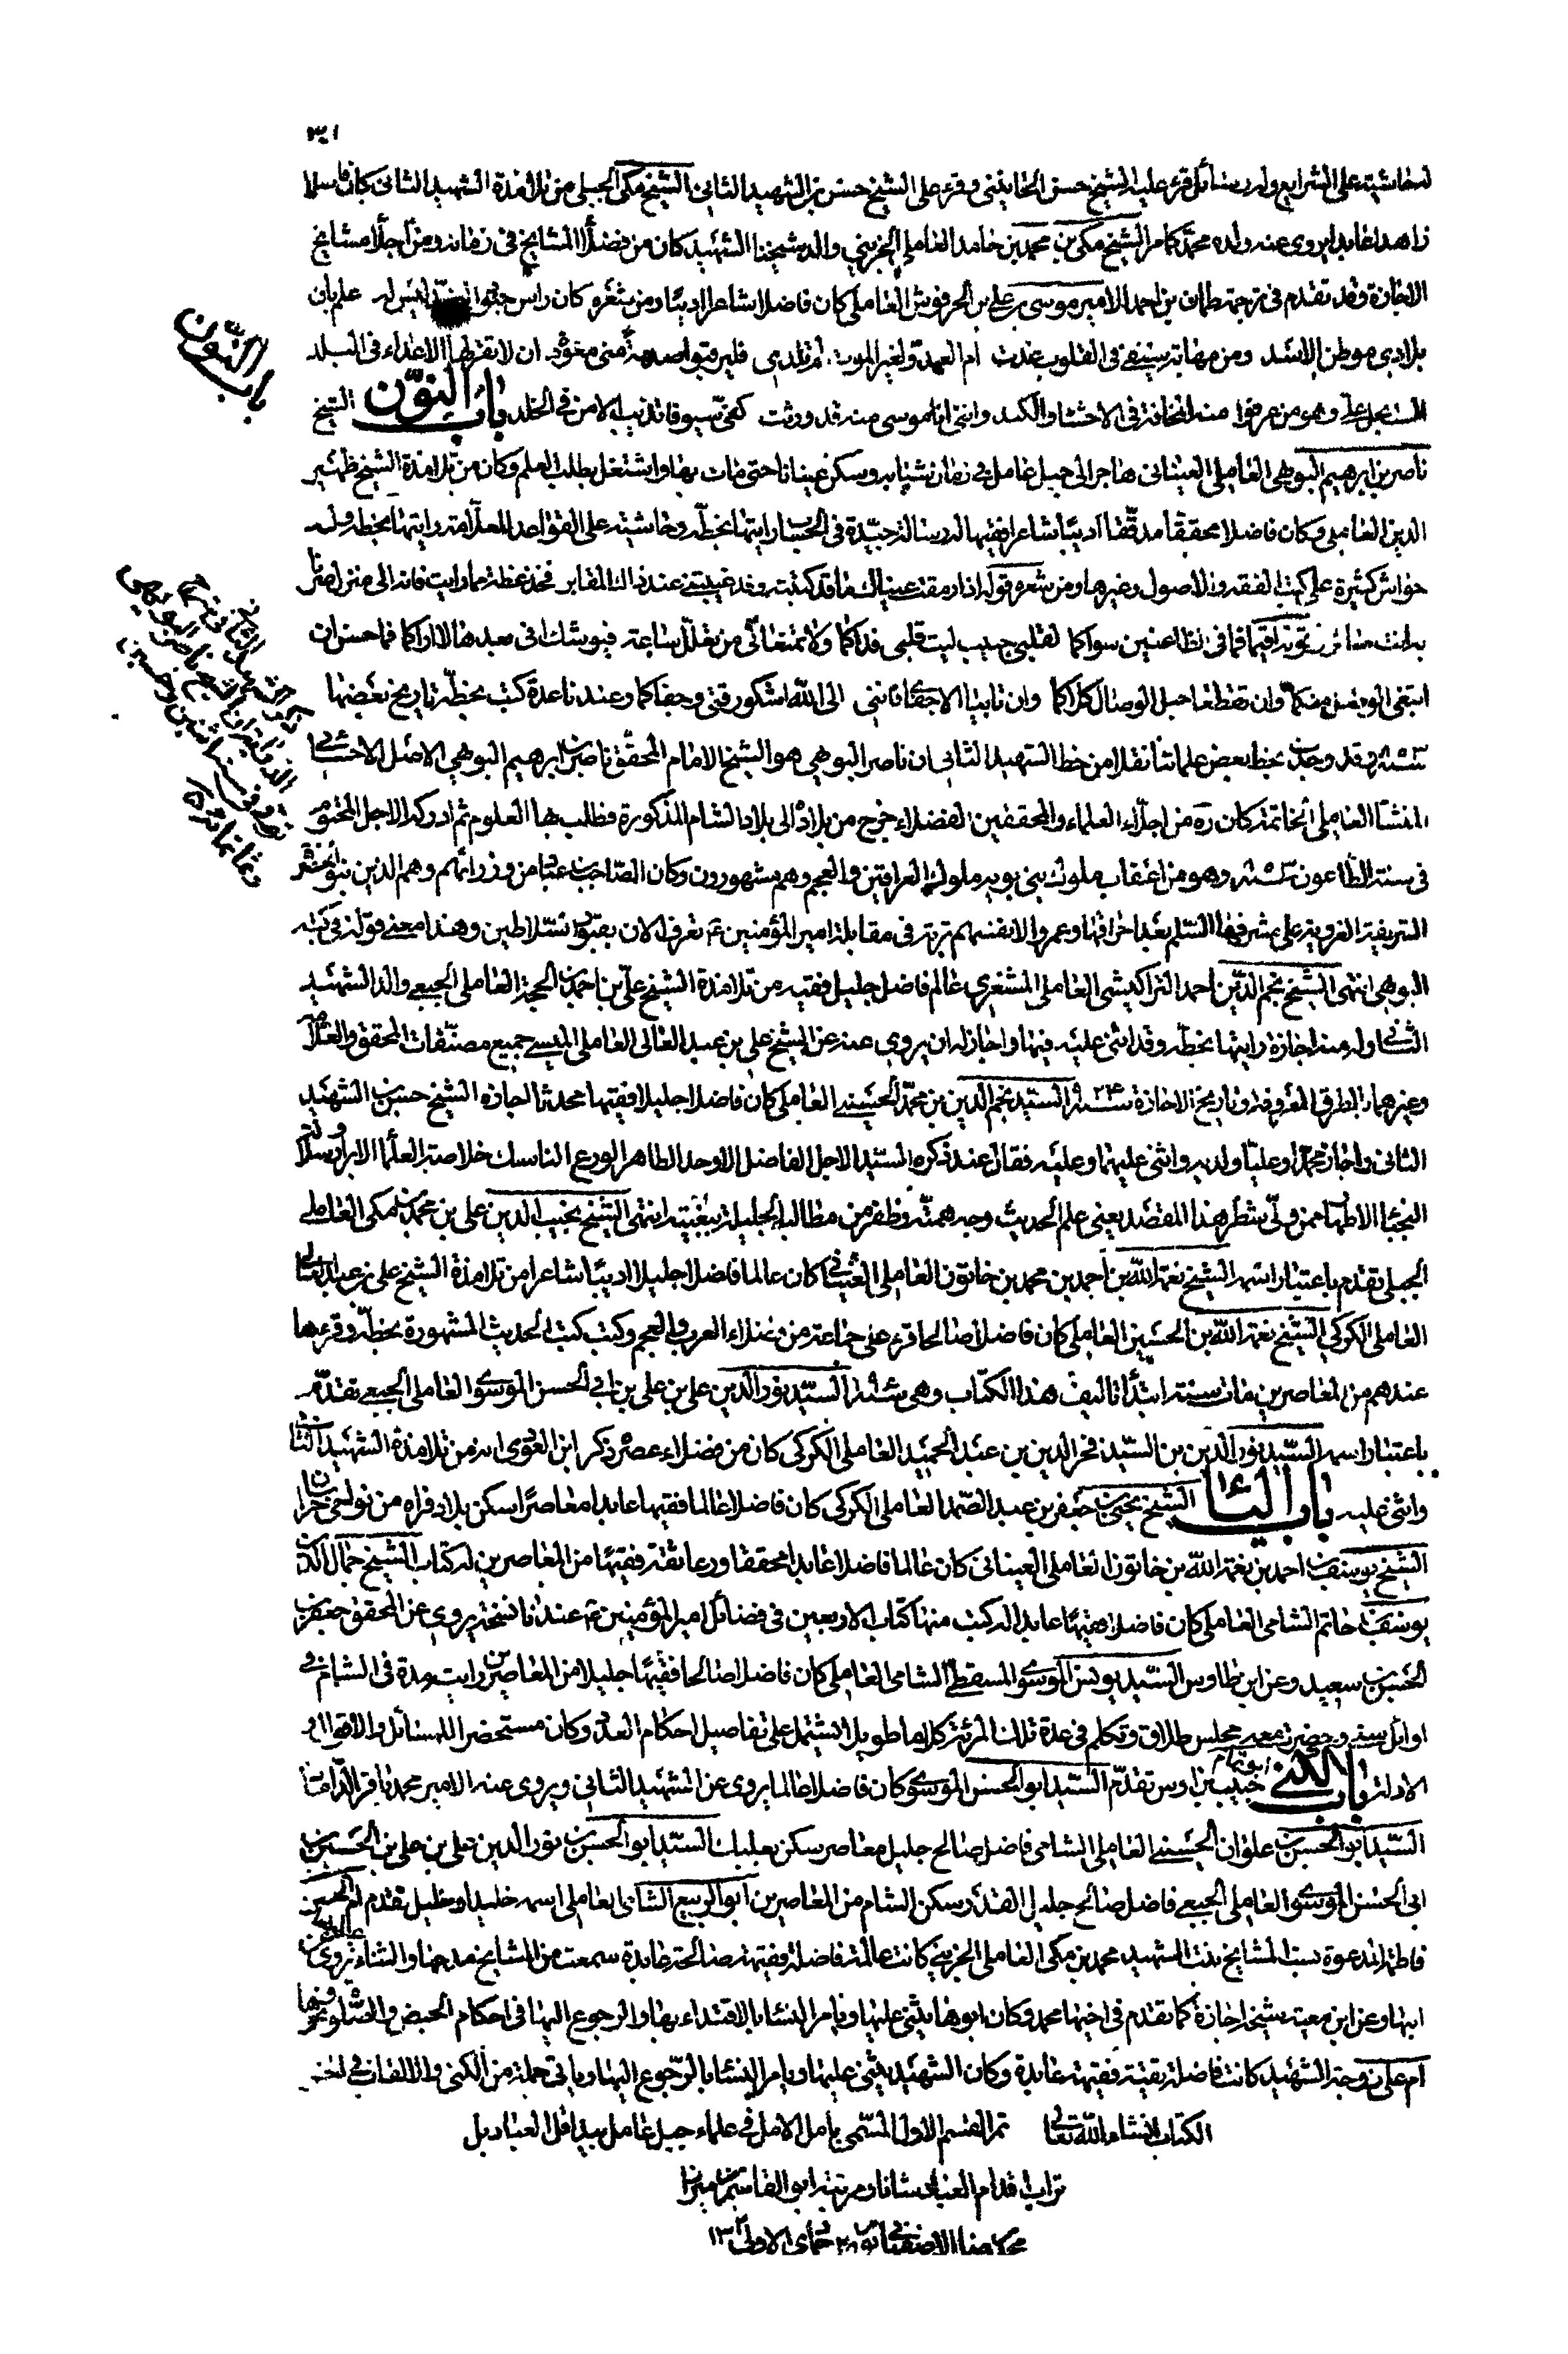 ٣١
له حاشية على الشرايع وله رسائل قرء عليه الشيخ حسن الحانيني وقرء على الشيخ حسن بن الشهيد الثاني الشيخ مكي الجبلي من تلامذة الشهيد الثاني كان فاضلا
زاهدا عابدا يروي عنه ولده محمد كما مر الشيخ مكي بن محمد بن حامد العاملي الجزيني والد شيخنا الشهيد كان من فضلاء المشايخ في زمانه ومن اجلاء مشايخ
الاجازة وقد تقدم في ترجمة طمان بن احمد الامير موسى بن علي بن الحرفوش العاملي كان فاضلا شاعرا اديبا ومن شعره كان راس علم بان
بلادي موطن الاسد ومن مهابة سيفي في القلوب غدت ام العدو لغير الموت لم تلد فليرقبوا صدمة مني معوّد ان لا تقر لها الاعداء في البلد
منه اتخانة في الاحشاء والكبد وانني انا موسى منه قد ورثت كفي سيوفا تذيب الامن في الخلد باب النون الشيخ
ناصر بن ابرهيم البويهي العاملي العيناثي هاجر الى جبل عامل في زمان شبابه وسكن عيناثا حتى مات بها واشتغل بطلب العلم وكان من تلامذة الشيخ ظهير
الدين العاملي وكان فاضلا محققا مدققا اديبا شاعرا فقيها له رسالة جيدة في الحساب رايتها بخطه وحاشية على القواعد للعلامة رايتها بخطه وله
حواش كثيرة على كتب الفقه والاصول وغيرها ومن شعره قوله اذا رمقت عيناك ما قد كتبته وقد غيبتني عند ذاك المقابر فخذ عظة مما رايت فانه الى منزل صرنا
به انت صائر نمو به اقيما فما في الظاعنين سواكما لقلبي حبيب ليت قلبي فداكما ولا تمنعاني من تعلل ساعة فيوشك اني بعدها لا اراكما فما حسن ان
ابتغي الوصل منكما وان تقطعا حبل الوصال كلاكما وان تابيا الا جفا فانني الى الله اشكو رقتي وجفاكما وعندنا عدة كتب بخطه تاريخ بعضها
وقد وجدت بخط بعض علمائنا نقلا من خط الشهيد الثاني ان ناصر البويهي هو الشيخ الامام المحقق ناصر بن ابرهيم البويهي الاصل الاحسائي
المنشا العاملي الخاتمة كان ره من اجلاء العلماء والمحققين الفضلاء خرج من بلاده الى بلاد الشام المذكورة فطلب بها العلوم ثم ادركه الاجل المحتوم
في سنة الطاعون وهو من اعقاب ملوك بني بويه ملوك العراقين والعجم وهم مشهورون وكان الصاحب بن عباد من وزرائهم وهم الذين بنوا الحضرة
الشريفة الغروية على مشرفها السلم بعد احراقها وعمروا لانفسهم تربة في مقابلة امير المؤمنين ع تعرف الان بقبور السلاطين وهذا معنى قوله في كتبه
البويهي انتهى الشيخ نجم الدين بن احمد التراكيشي العاملي المشغري عالم فاضل جليل فقيه من تلامذة الشيخ علي بن احمد بن الحجة العاملي الجبعي والد الشهيد
الثاني وله منه اجازة رايتها بخطه وقد اثنى عليه فيها واجاز له ان يروي عنه عن الشيخ علي بن عبد العالي العاملي الميسي جميع مصنفات المحقق والعلامة
وغيرهما بالطرق المعروفة وتاريخ الاجازة سنة ٩٢٤ السيد نجم الدين بن محمد الحسيني العاملي كان فاضلا جليلا فقيها محدثا اجازه الشيخ حسن بن الشهيد
الثاني واجاز محمدا وعليا ولديه واثنى عليهما وعليه فقال عند ذكره السيد الاجل الفاضل الاوحد الطاهر الورع الناسك خلاصة العلماء الابرار وسلالة
النجباء الاطهار ممن ولّى شطر هذا المقصد يعني علم الحديث وجه همته وظفر من مطالبه الجليلة ببغيته انتهى الشيخ نجيب الدين علي بن محمد بن مكي العاملي
الجبلي تقدم باعتبار اسمه الشيخ نعمة الله بن احمد بن محمد بن خاتون العاملي العيناثي كان عالما فاضلا جليلا اديبا شاعرا من تلامذة الشيخ علي بن عبد العالي
العاملي الكركي الشيخ نعمة الله بن الحسين العاملي كان فاضلا صالحا قرء على جماعة من فضلاء العرب والعجم وكتب كتب الحديث المشهورة بخطه وقرءها
عندهم من المعاصرين مات سنة ابتداء تاليف هذا الكتاب وهي سنة السيد نور الدين علي بن علي بن ابي الحسن الموسوي العاملي الجبعي تقدم
باعتبار اسمه السيد نور الدين بن السيد فخر الدين بن عبد الحميد العاملي الكركي كان من فضلاء عصره ذكر ابن العودي انه من تلامذة الشهيد الثاني
واثنى عليه باب الياء الشيخ يحيى بن جعفر بن عبد الصمد العاملي الكركي كان فاضلا عالما فقيها عابدا معاصرا سكن بلاد فراه من نواحي خراسان
الشيخ يوسف بن احمد بن نعمة الله بن خاتون العاملي العيناثي كان عالما فاضلا عابدا محققا ورعا ثقة فقيها من المعاصرين له كتاب الشيخ جمال الدين
يوسف بن حاتم الشامي العاملي كان فاضلا فقيها عابدا له كتب منها كتاب الاربعين في فضائل امير المؤمنين ع عندنا نسخة يروي عن المحقق جعفر بن
الحسن بن سعيد وعن ابن طاوس السيد يونس الموسوي السقطي الشامي العاملي كان فاضلا صالحا فقيها جليلا من المعاصرين رايته مدة في الشام في
اوائل سنه وحضرت معه مجلس طلاق وتكلم في عدة تلك المرئة كلاما طويلا اشتمل على تفاصيل احكام العدد وكان مستحضرا للمسائل والاقوال و
الادلة باب الكنى ابو تمام حبيب بن اوس تقدم السيد ابو الحسن الموسوي كان فاضلا عالما يروي عن الشهيد الثاني ويروي عنه الامير محمد باقر الداماد
السيد ابو الحسن بن علوان الحسيني العاملي الشامي فاضل صالح جليل معاصر سكن بعلبك السيد ابو الحسن بن نور الدين علي بن علي بن الحسين بن
ابي الحسن الموسوي العاملي الجبعي فاضل صالح جليل القدر سكن الشام من المعاصرين ابو الربيع الشامي العاملي اسمه خليد او خليل تقدم ام الحسن
فاطمة المدعوة بست المشايخ بنت الشهيد محمد بن مكي العاملي الجزيني كانت عالمة فاضلة فقيهة صالحة عابدة سمعت من المشايخ مدحها والثناء عليها تروي عن
ابيها وعن ابن معية شيخه اجازة كما تقدم في اخيها محمد وكان ابوها يثني عليها ويامر النساء بالاقتداء بها والرجوع اليها في احكام الحيض والصلوة ونحوها
ام علي زوجة الشهيد كانت فاضلة تقية فقيهة عابدة وكان الشهيد يثني عليها ويامر النساء بالرجوع اليها وياتي جملة من الكنى والالقاب في اخر
الكتاب انشاء الله تعالى تم القسم الاول المسمى بامل الامل في علماء جبل عامل بيد اقل العباد بل
تراب اقدام العباد شانا ومرتبة ابو القاسم بن ميرزا
جمادى الاولى
باب النون